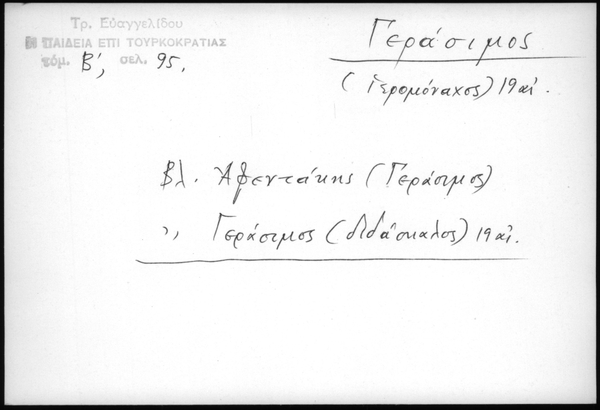 Τρ. Εὐαγγελίδου
Η ΠΑΙΔΕΙΑ ΕΠΙ ΤΟΥΡΚΟΚΡΑΤΙΑΣ
τόμ. Β', σελ. 95.
Γεράσιμος
(Ἱερομόναχος) 19 αἰ.
Βλ. Ἀφεντάκης (Γεράσιμος)
,, Γεράσιμος (διδάσκαλος) 19 αἰ.